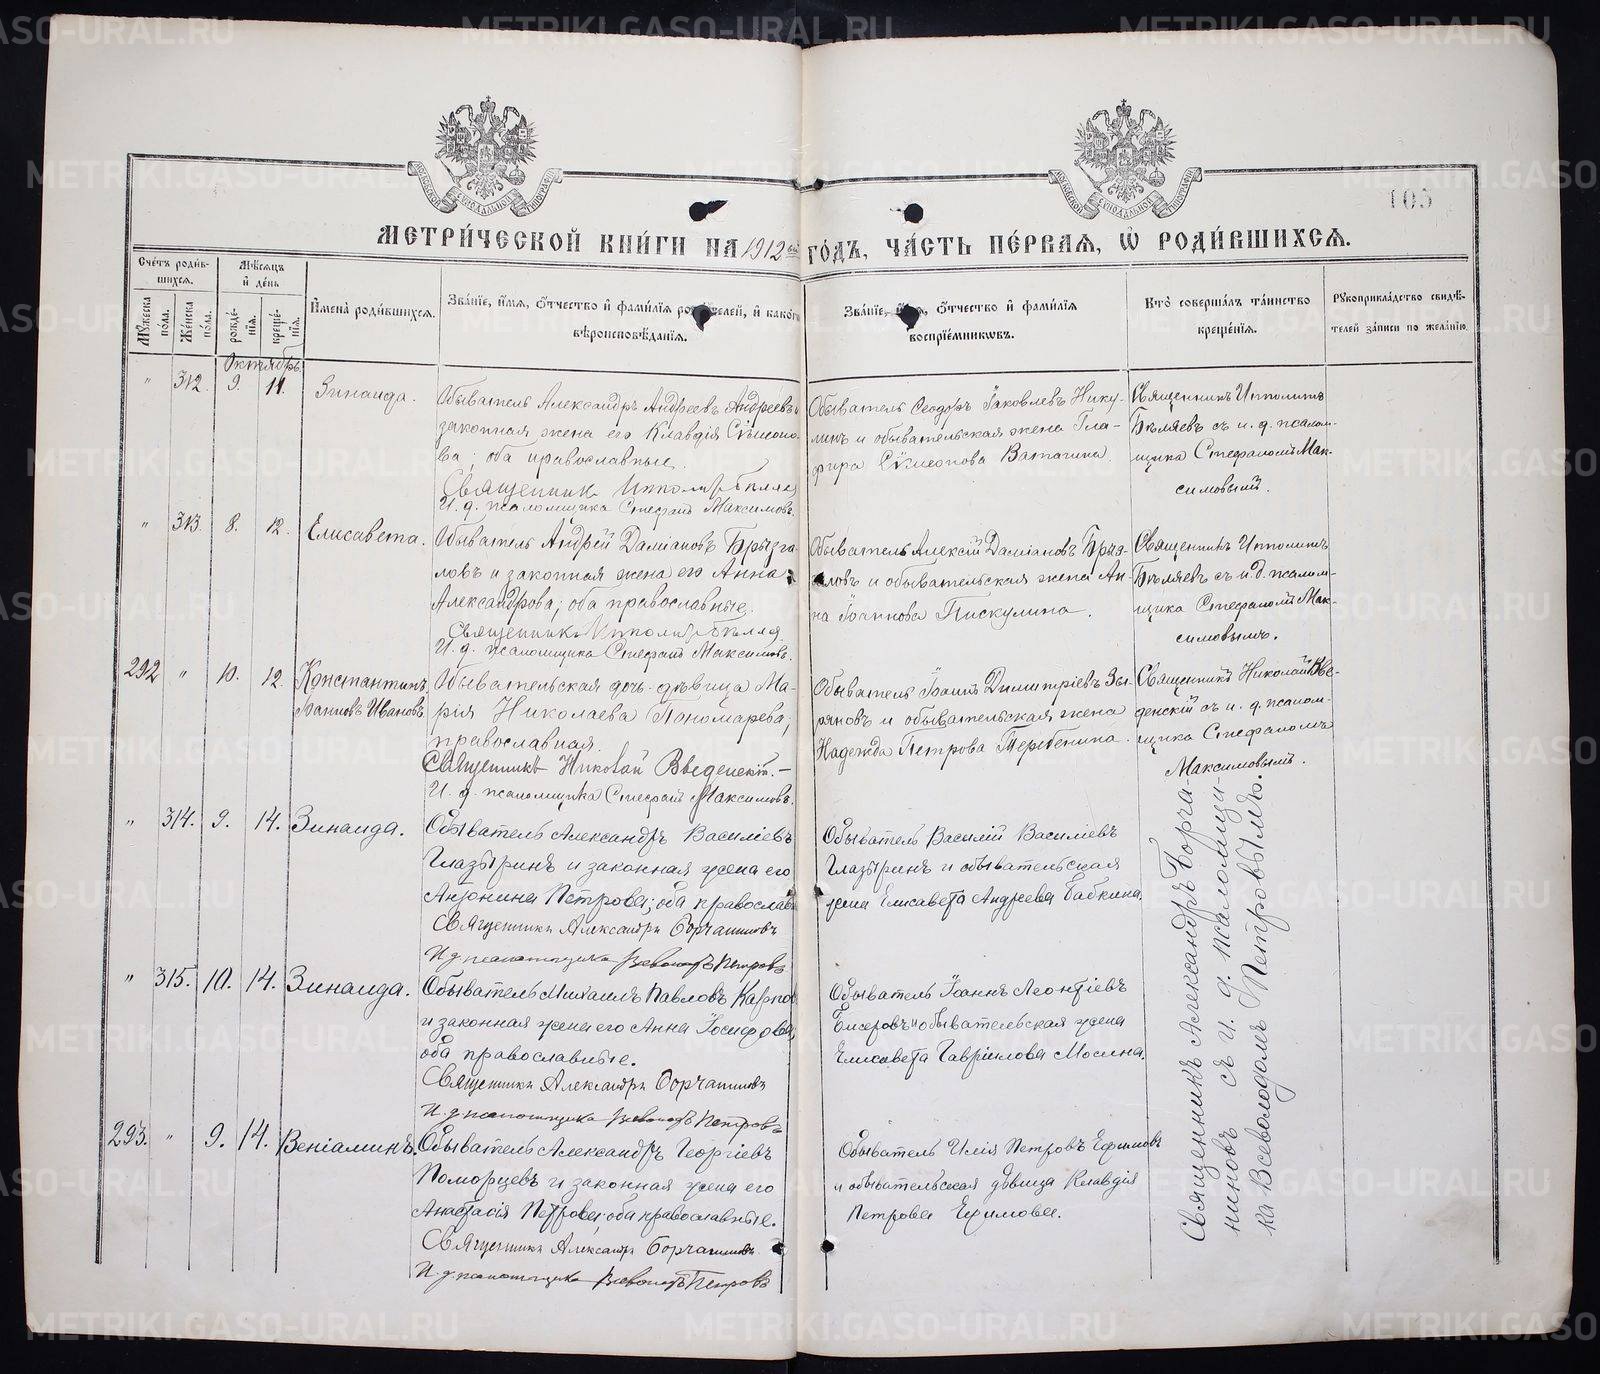 105
МЕТРИ́ЧЕСКОЙ КНИ́ГИ НА 1912 ый ГО́ДЪ, ЧА́СТЬ ПЕ́РВАЯ, Ѡ РОДИ́ВШИХСЯ.
Сче́тъ роди́вшихся.
Мꙋжеска пола.
Же́нска пола.
Мѣ́сяцъ и де́нь
рожде́нїѧ.
креще́нїѧ.
И҆мена̀ роди́вшихся.
Зва́нїе, и҆́мѧ, ѻ҆́тчество и҆ фами́лїѧ роди́телей, и҆ како́гѡ
вѣроисповѣ́данїѧ.
Зва́нїе, и҆́мѧ, ѻ҆́тчество и҆ фами́лїѧ
воспрїе́мниковъ.
Кто̀ соверша́лъ та́инство
креще́нїѧ.
Рꙋкоприкла́дство свидѣ́-
телей за́писи по жела́нїю.
Октябрь
" 312. 9. 11. Зинаида.
Обыватель Александръ Андреевъ Андреевъ и
законная жена его Клавдія Сѵмеоно-
ва; оба православные.
Священникъ Ипполитъ Бѣляев
И. д. псаломщика Стефанъ Максимовъ.
Обыватель Ѳеодоръ Іаковлевъ Нику-
линъ и обывательская жена Гла-
фира Сѵмеонова Ватагина.
Священникъ Ипполитъ
Бѣляевъ съ и. д. псалом-
щика Стефаномъ Мак-
симовымъ.
" 313. 8. 12. Елисавета.
Обыватель Андрей Даміановъ Брызга-
ловъ и законная жена его Анна
Александрова; оба православные.
Священникъ Ипполитъ Бѣляев
И. д. псаломщика Стефанъ Максимовъ.
Обыватель Алексій Даміановъ Брыз-
галовъ и обывательская жена Ан-
на Іоаннова Пискулина.
Священникъ Ипполитъ
Бѣляевъ съ и. д. псалом-
щика Стефаномъ Мак-
симовымъ.
292 " 10. 12. Константинъ
Іоанновъ Ивановъ.
Обывательская дочь-дѣвица Ма-
рія Николаева Пономарева,
православная.
Священникъ Николай Введенскій.—
И. д. псаломщика Стефанъ Максимовъ.
Обыватель Іоаннъ Димитріевъ Зы-
ряновъ и обывательская жена
Надежда Петрова Теребенина.
Священникъ Николай Вве-
денскій съ и. д. псалом-
щика Стефаномъ
Максимовымъ.
" 314. 9. 14. Зинаида.
Обыватель Александръ Василіевъ
Глазыринъ и законная жена его
Антонина Петрова; оба православн
Священникъ Александръ Борчаниновъ
И. д. псаломщика Всеволодъ Петровъ
Обыватель Василій Василіевъ
Глазыринъ и обывательская
жена Елисавета Андреева Бабкина.
Священникъ Александръ Борча-
ниновъ съ и. д. псаломщи-
ка Всеволодомъ Петровымъ.
" 315. 10. 14. Зинаида.
Обыватель Михаилъ Павловъ Карпов
и законная жена его Анна Іосифова,
оба православные.
Священникъ Александръ Борчаниновъ
И. д. псаломщика Всеволодъ Петровъ
Обыватель Іоаннъ Леонтіевъ
Бисеровъ и обывательская жена
Елисавета Гавріилова Мосина.
293. " 9. 14. Веніаминъ.
Обыватель Александръ Георгіевъ
Поморцевъ и законная жена его
Анастасія Петрова; оба православные.
Священникъ Александръ Борчаниновъ
И. д. псаломщика Всеволодъ Петровъ
Обыватель Илія Петровъ Ефимовъ
и обывательская дѣвица Клавдія
Петрова Ефимова.
METRIKI.GASO-URAL.RU